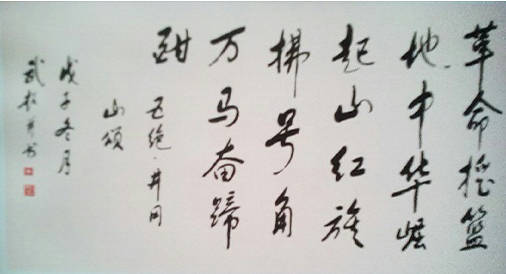 革命摇篮
地中华崛
起山红旗
拂号角
万马奋蹄
酣 五绝·井冈
山颂
戊子冬月
武 书